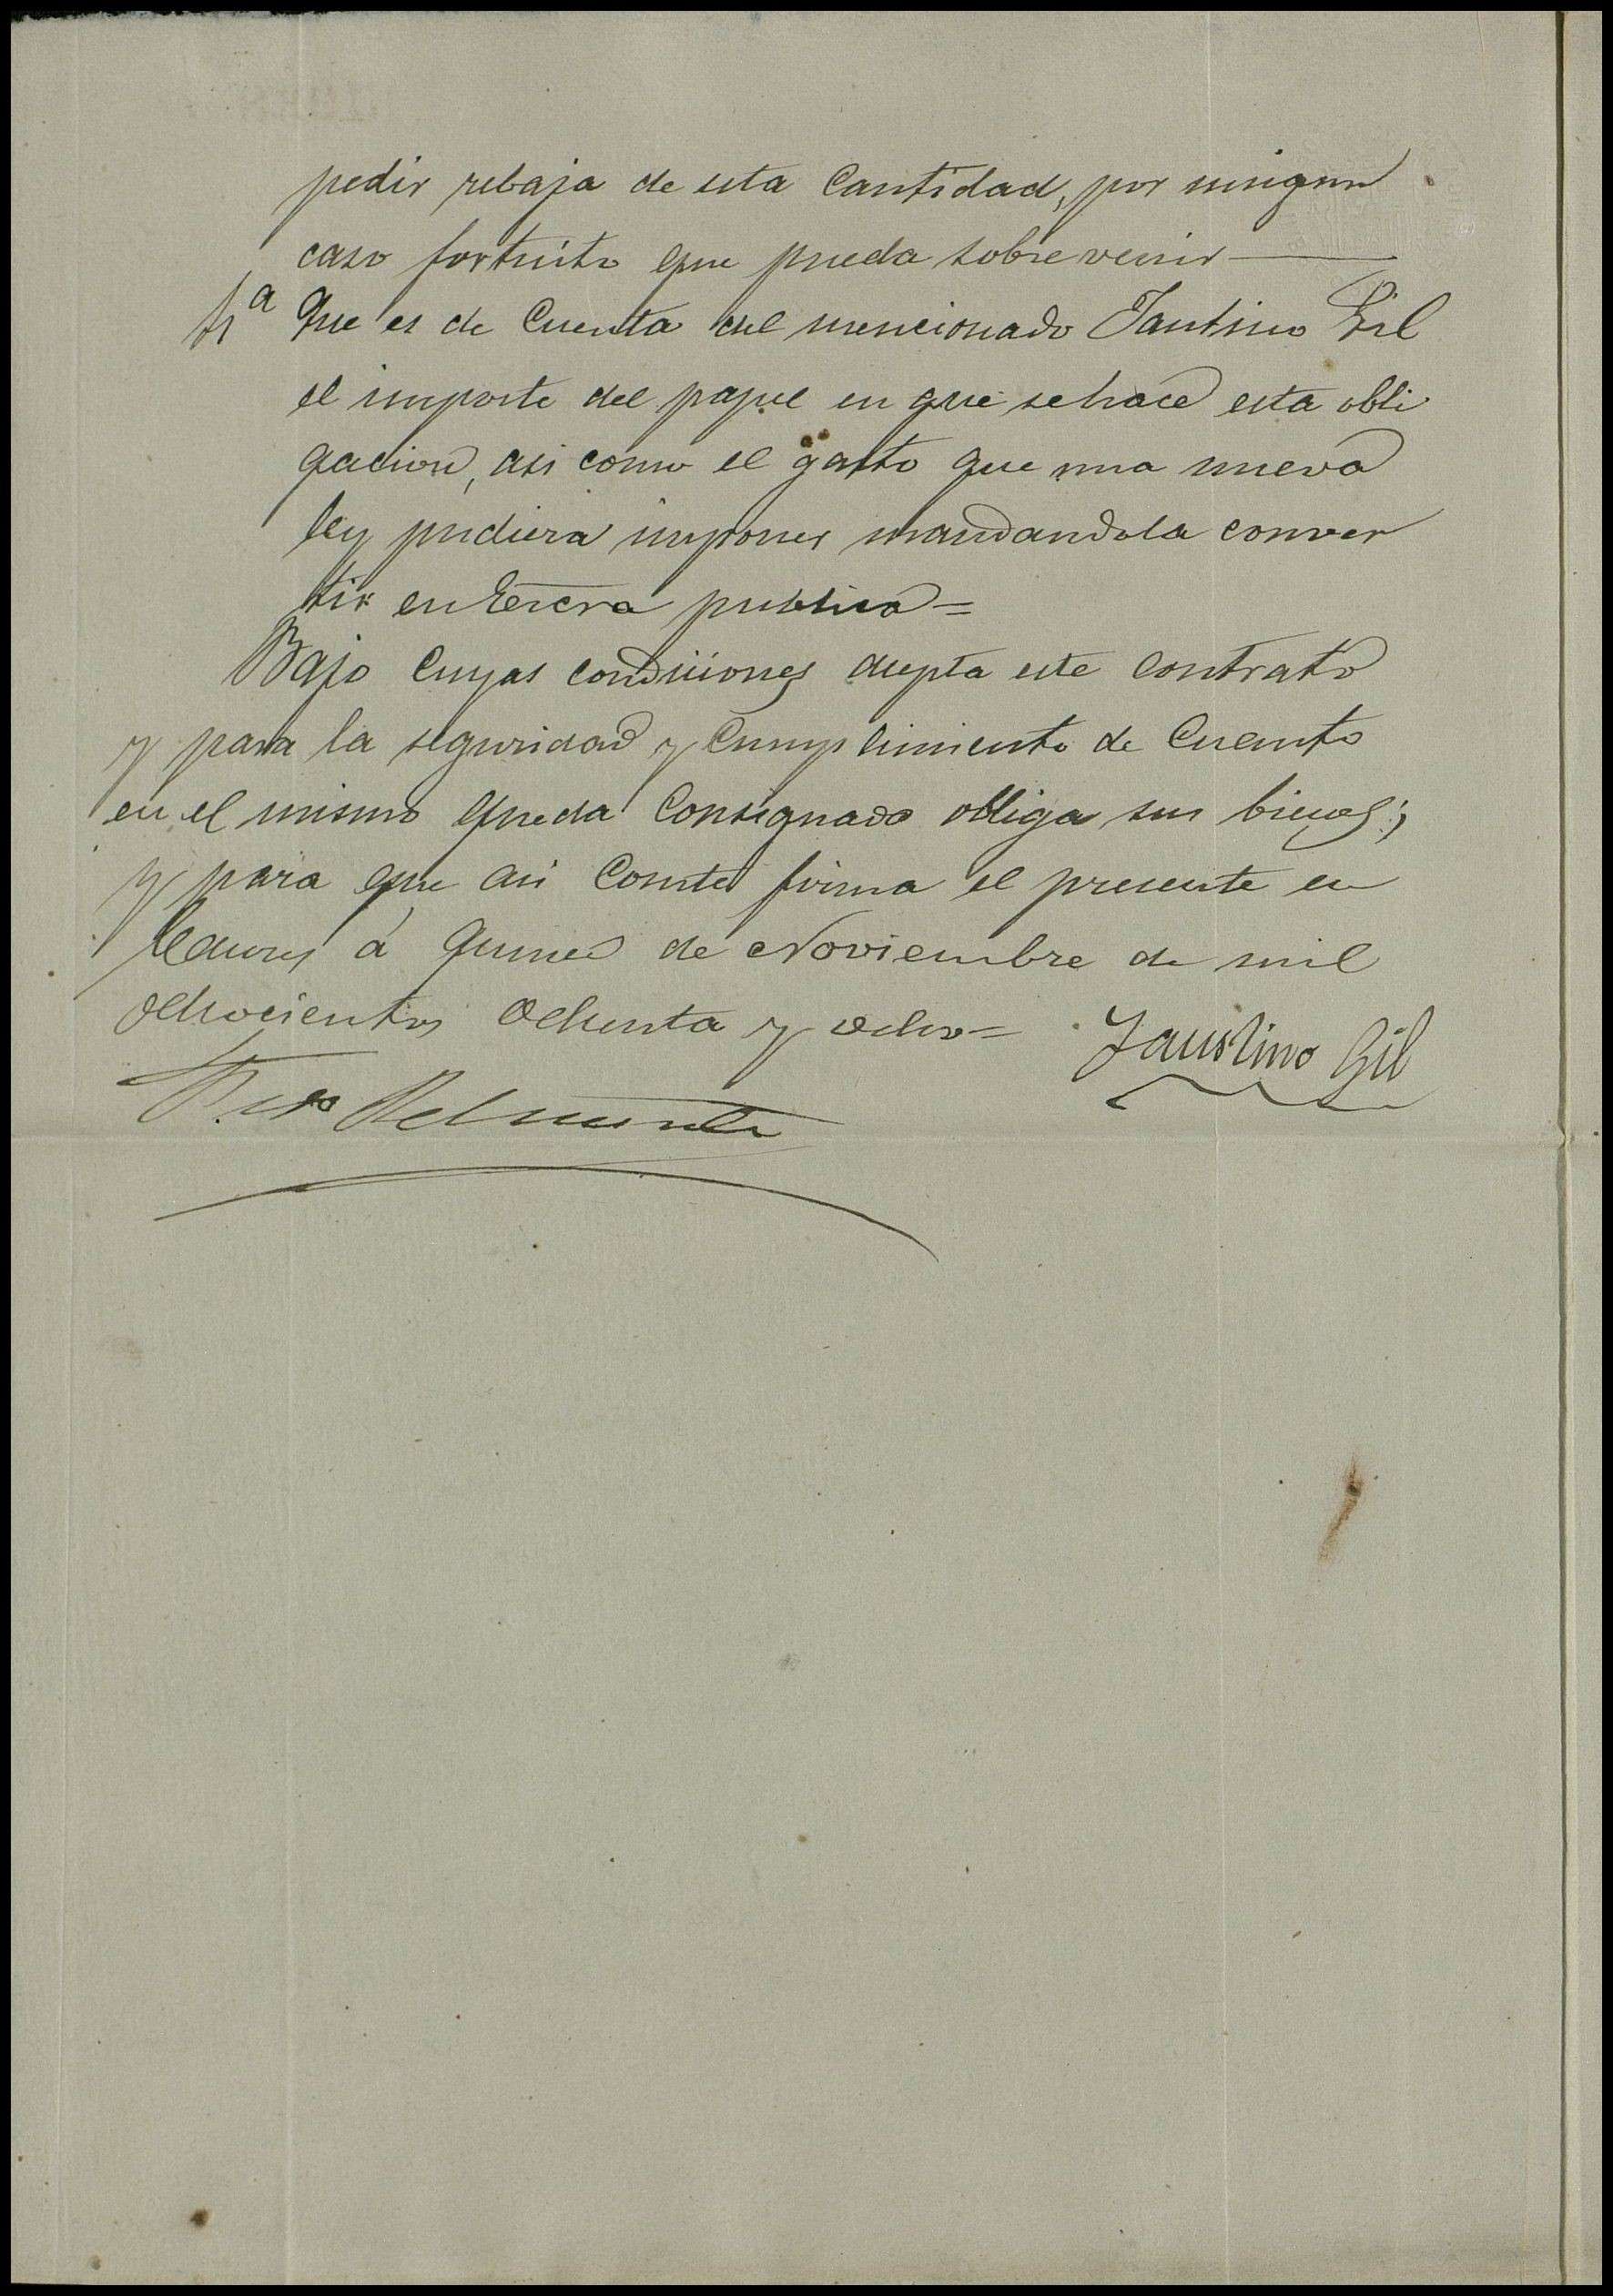 pedir rebaja de esta Cantidad, por ningun
caso fortuito que pueda sobrevenir
Que es de Cuenta del mencionado Faustino Gil
el importe del papel en que se hace esta obli
gacion, asi como el gasto que una nueva
ley pudiera imponer mandandola conver
tir en Escra publica =
Bajo Cuyas condiciones acepta este contrato
y para la seguridad y Cumplimiento de Cuanto
en el mismo queda Consignado obliga sus bienes;
y para que asi Conste firma el presente en
á quince de Noviembre de mil
Ochocientos Ochenta y ocho =
Faustino Gil